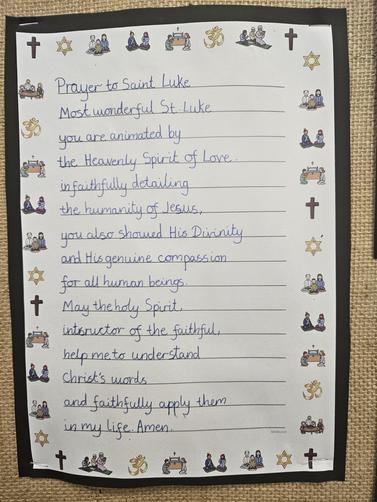 Prayer to Saint Luke
Most wonderful St. Luke
you are animated by
the Heavenly Spirit of Love.
infaithfully detailing
the humanity of Jesus,
you also showed His Divinity
and His genuine compassion
for all human beings.
May the holy Spirit,
intsructor of the faithful,
help me to understand
Christ's words
and faithfully apply them
in my life. Amen.